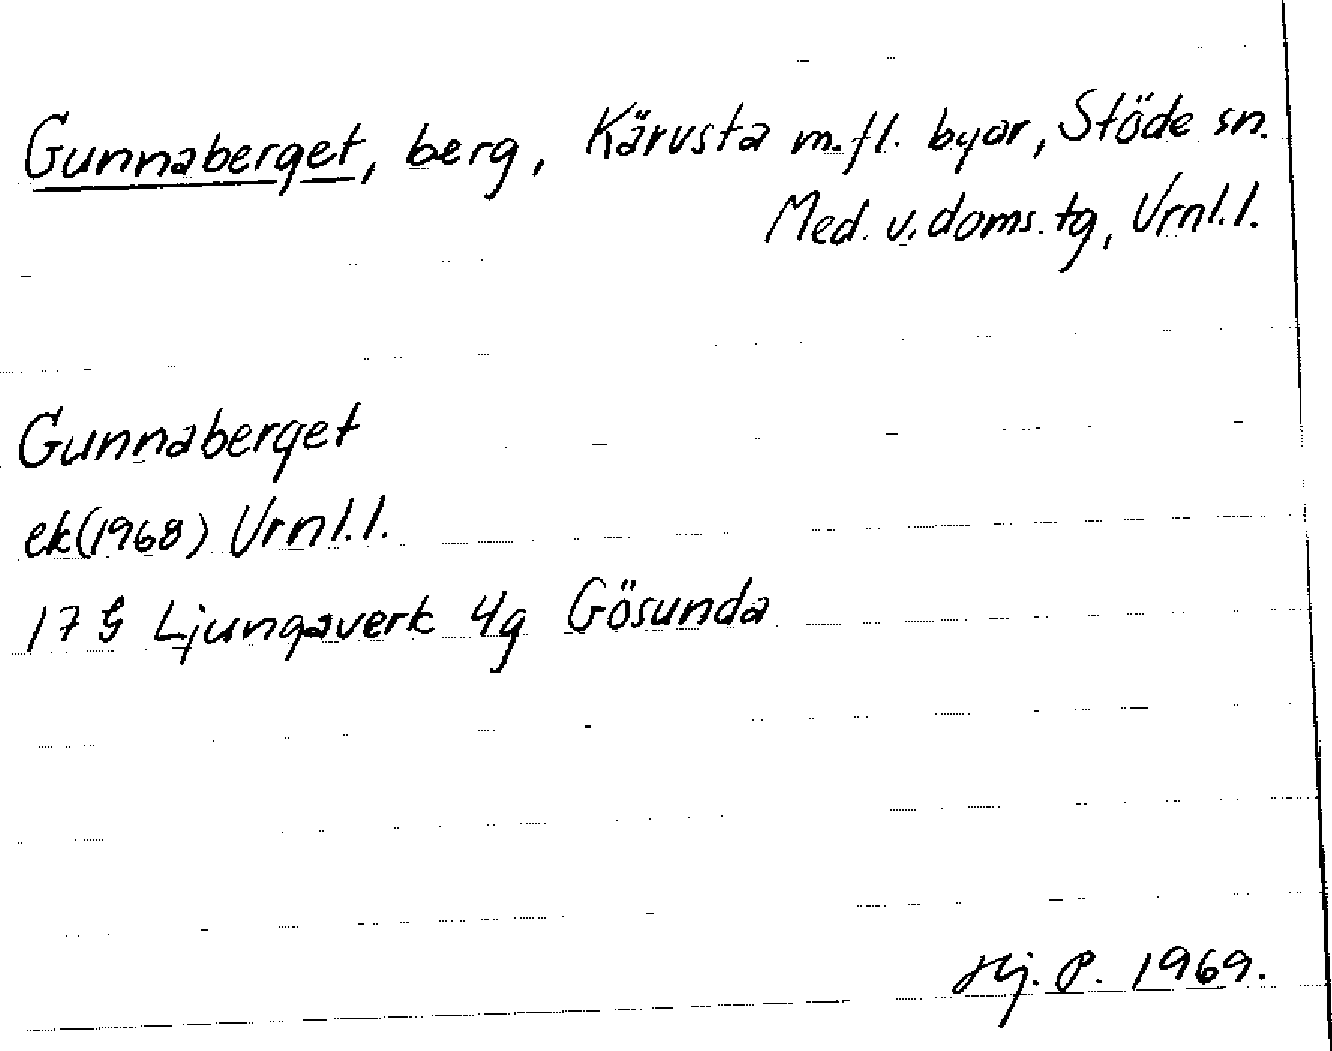 Gunnaberget, berg, Kärvsta m.fl. byar, Stöde sn.
Med. v. doms. tg, Vrnl. l.
Gunnaberget
ek (1968) Vrnl. l.
17 G Ljungaverk 4g Gösunda
Hj. P. 1969.